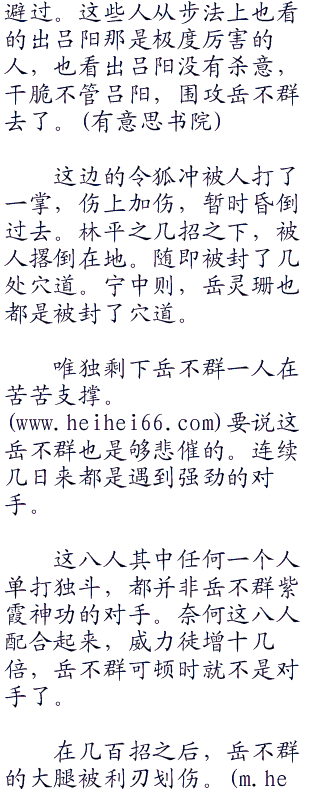 避过。这些人从步法上也看
的出吕阳那是极度厉害的
人，也看出吕阳没有杀意，
干脆不管吕阳，围攻岳不群
去了。(有意思书院)
这边的令狐冲被人打了
一掌，伤上加伤，暂时昏倒
过去。林平之几招之下，被
人撂倒在地。随即被封了几
处穴道。宁中则，岳灵珊也
都是被封了穴道。
唯独剩下岳不群一人在
苦苦支撑。
(www.heihei66.com)要说这
岳不群也是够悲催的。连续
几日来都是遇到强劲的对
手。
这八人其中任何一个人
单打独斗，都并非岳不群紫
霞神功的对手。奈何这八人
配合起来，威力徒增十几
倍，岳不群可顿时就不是对
手了。
在几百招之后，岳不群
的大腿被利刃划伤。(m.he